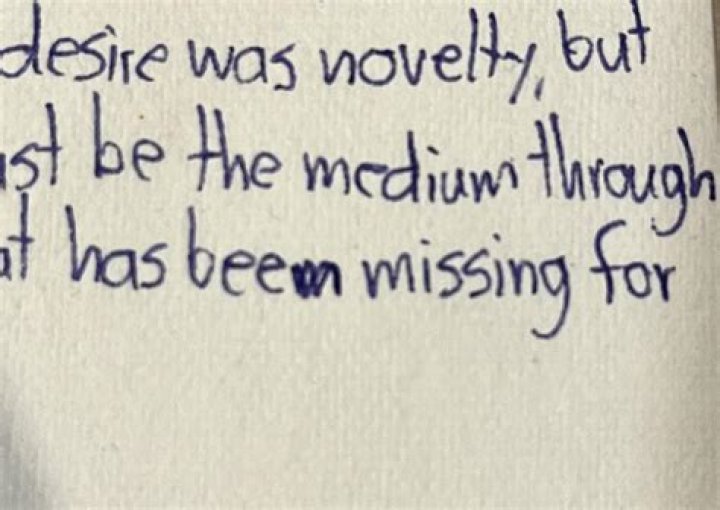 desire was novelty, but
ust be the medium through
at has been missing for